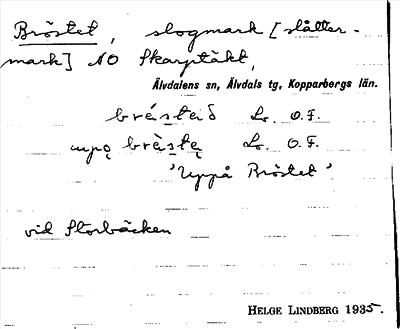 Bröstet, slogmark [slåtter-
mark] NO Skarptäkt,
Älvdalens sn, Älvdals tg, Kopparbergs län.
brésteð Lr. O.F.
uppǫ brèstę Lr. O.F.
'Uppå Bröstet'
vid Storbäcken
HELGE LINDBERG 1935.